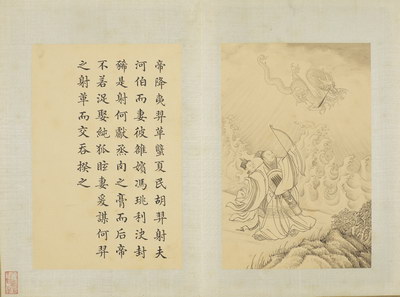 帝降夷羿革孽夏民胡羿射夫
河伯而妻彼雒嬪馮珧利決封
豨是射何獻蒸肉之膏而后帝
不若浞娶純狐眩妻爰謀何羿
之射革而交吞揆之